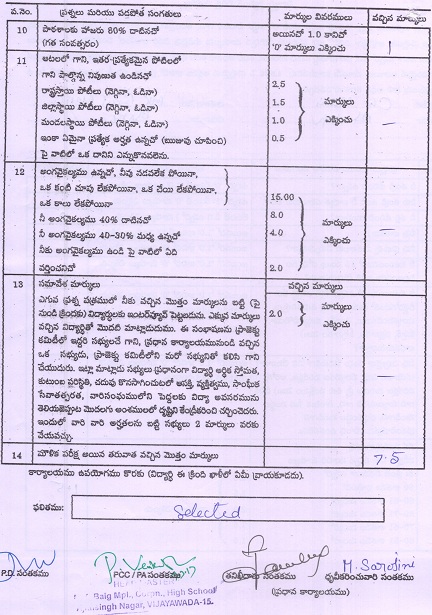 వ.నెం. ప్రశ్నలు మరియు పడపోత సంగతులు మార్కుల వివరములు వచ్చిన మార్కులు
10 పాఠశాలకు హాజరు 80% దాటినచో అయినచో 1.0 కానిచో
(గత సంవత్సరం) '0' మార్కులు ఎక్కించు
11 ఆటలలో గాని, ఇతర ప్రత్యేకమైన పోటిలలో
గాని పాల్గొన్న నిపుణుత ఉండినచో 2.5
రాష్ట్రస్థాయి పోటీలు (నెగ్గినా, ఓడినా)
జిల్లాస్థాయి పోటీలు (నెగ్గినా, ఓడినా) 1.5 మార్కులు
మండలస్థాయి పోటీలు (నెగ్గినా, ఓడినా) 1.0 ఎక్కించు
ఇంకా ఏమైనా ప్రత్యేక అర్హత ఉన్నచో (ఋజువు చూపించి) 0.5
పై వాటిలో ఒక దానిని ఎన్నుకొనవలెను.
12 అంగవైకల్యము ఉన్నచో, నీవు నడవలేక పోయినా,
ఒక కంటి చూపు లేకపోయినా, ఒక చేయి లేకపోయినా,
ఒక కాలు లేకపోయినా 15.00
నీ అంగవైకల్యము 40% దాటినచో 8.0 మార్కులు
నీ అంగవైకల్యము 40-30% మధ్య ఉన్నచో 4.0 ఎక్కించు
నీకు అంగవైకల్యము ఉండి పై వాటిలో ఏది
వర్తించనిచో 2.0
13 సమావేశ మార్కులు వచ్చిన మార్కులు
ఎగువ ప్రశ్న పత్రములో నీకు వచ్చిన మొత్తం మార్కులను బట్టి (పై
నుండి క్రిందకు) విద్యార్థులకు ఇంటర్వ్యూన్ పెట్టబడును. ఎక్కువ మార్కులు 2.0 మార్కులు
వచ్చిన విద్యార్థితో మొదటి మాట్లాడుదుము. ఈ సంభాషణను ప్రాజెక్టు ఎక్కించు
కమిటీలో ఇద్దరి సభ్యులచే గాని, ప్రధాన కార్యాలయమునుండి వచ్చిన
ఒక సభ్యుడు, ప్రాజెక్టు కమిటీలోని మరో సభ్యునితో కలిసి గాని
చేయుదురు. ఇట్లా మాట్లాడు సభ్యులు ప్రధానంగా విద్యార్థి ఆర్థిక స్తోమత,
కుటుంబ పరిస్థితి, చదువు కొనసాగించుటలో ఆసక్తి, వ్యక్తిత్వము, సాంఘీక
సేవాతత్పరత, వారిసంఘములోని పెద్దలకు విద్యా అవసరమును
తెలియజెప్పుట మొదలగు అంశములలో దృష్టిని కేంద్రీకరించి చర్చించెదరు.
ఇందులో వారి వారి అర్హతలను బట్టి సభ్యులు 2 మార్కులు వరకు
వేయవచ్చు.
14 మౌళిక పరీక్ష అయిన తరువాత వచ్చిన మొత్తం మార్కులు 7.5
కార్యాలయము ఉపయోగము కొరకు (విద్యార్థి ఈ క్రింది ఖాళీలో ఏమీ వ్రాయకూడదు).
ఫలితము: Selected
M. Sarojini
P.D. సంతకము PCC / PA సంతకము తనిఖీదారు సంతకము ధృవీకరించువారి సంతకము
(ప్రధాన కార్యాలయం)
Baig Mpl. High School
Nagar, VIJAYAWADA-15.